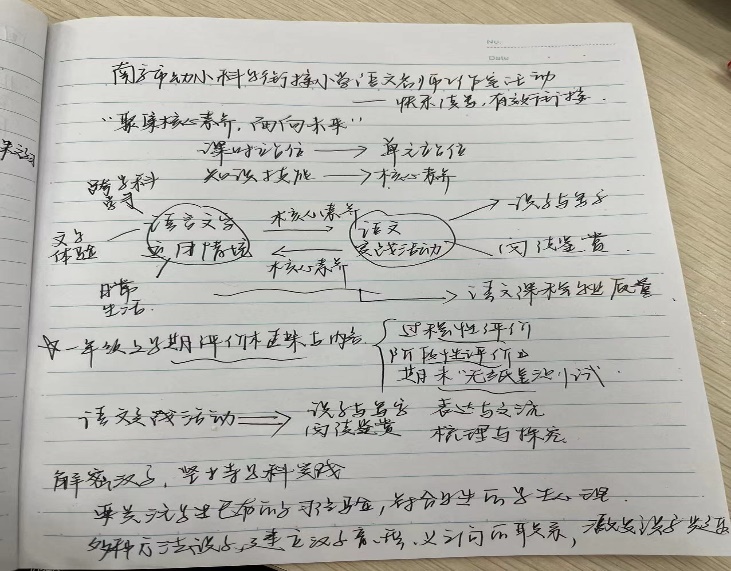 No.
Date
南宁市幼小科学衔接小学语文名师工作室活动
——快乐读写,有效衔接.
"聚集核心素养,面向未来"
课时站位 → 单元站位
知识技能 → 核心素养
跨学科
学习
语言文字
运用情境
核心素养
核心素养
语文
实践活动
识字与写字
阅读鉴赏
文学
体验
日常
生活.
语文课程 质量
☆一年级上学期评价 内容
过程性评价
阶段性评价
期末"无纸笔测"试
语文实践活动 ⇒ 识字与写字 表达与交流
阅读鉴赏 梳理与探究
解密汉字,坚持学科实践
要关注学生已有的 经验,符合学生的学生心理.
多种方法识字,建立汉字音、形、义之间的联系,激发识字兴趣